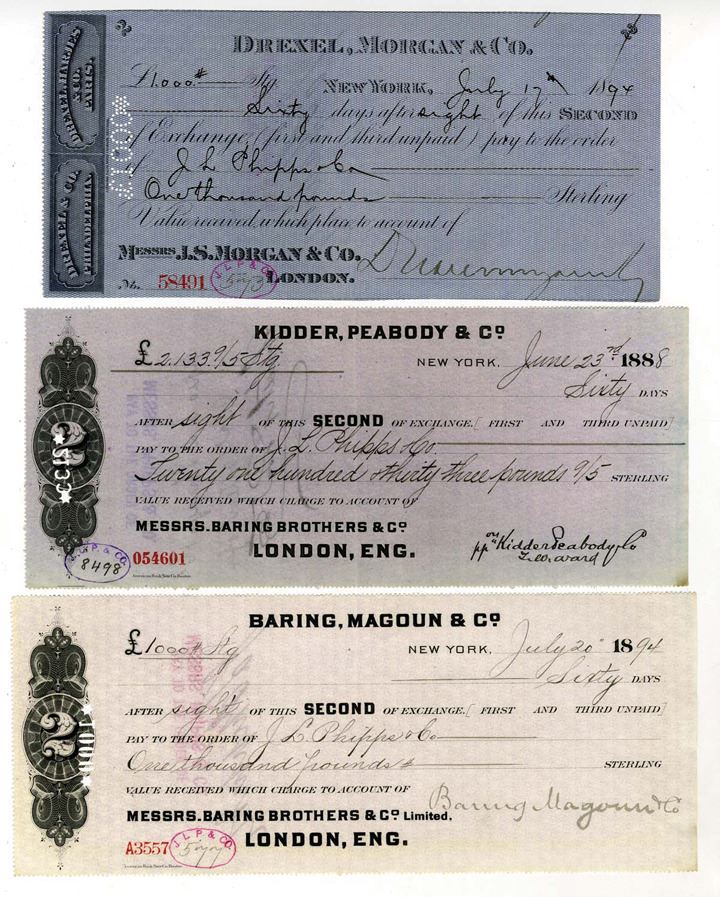 DREXEL, HARJES & CO. PARIS.
DREXEL & CO. PHILADELPHIA.
DREXEL, MORGAN & CO.
£1000# Stg NEW YORK, July 17th 1894
Sixty days after sight of this SECOND
of Exchange, (first and third unpaid) pay to the order
of J L Phipps & Co
One thousand pounds Sterling
Value received, which place to account of
MESSRS J.S. MORGAN & CO.
LONDON.
No. 58491
J L P & CO.
£1000
KIDDER, PEABODY & Co
£2.133.9/5 Stg. NEW YORK, June 23rd 1888
Sixty DAYS
AFTER sight OF THIS SECOND OF EXCHANGE.[ FIRST AND THIRD UNPAID]
PAY TO THE ORDER OF J. L. Phipps & Co
Twenty one hundred & thirty three pounds 9/5 STERLING
VALUE RECEIVED WHICH CHARGE TO ACCOUNT OF
MESSRS. BARING BROTHERS & Co
LONDON, ENG.
pp on Kidder Peabody & Co
J. L. P. & CO.
8498
054601
American Bank Note Co. Boston.
2
BARING, MAGOUN & Co
£1000# Stg NEW YORK, July 20th 1894
Sixty DAYS
AFTER sight OF THIS SECOND OF EXCHANGE.[ FIRST AND THIRD UNPAID]
PAY TO THE ORDER OF J. L. Phipps & Co
One thousand pounds # STERLING
VALUE RECEIVED WHICH CHARGE TO ACCOUNT OF
MESSRS. BARING BROTHERS & Co Limited,
LONDON, ENG.
Baring Magoun & Co
A3557
J L P & CO.
American Bank Note Co. Boston.
2